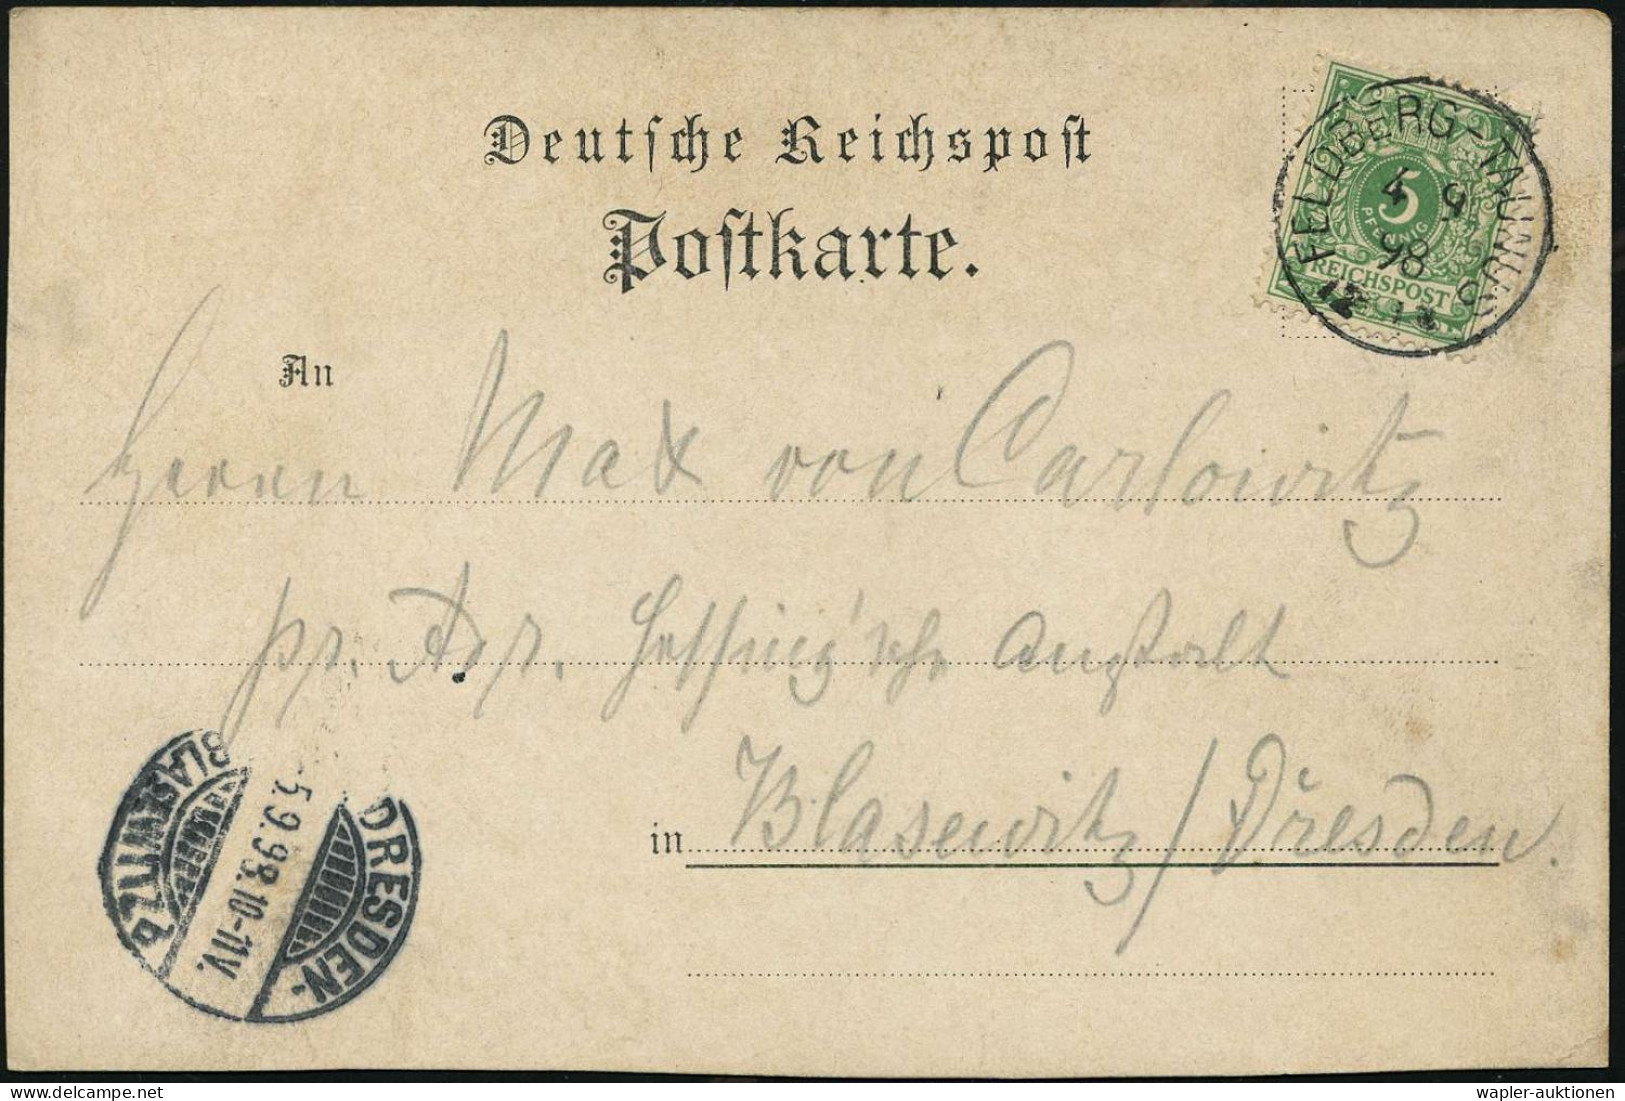 Deutsche Reichspost
Postkarte.
FELDBERG-TAUNUS
4 9
98
12
5
PFENNIG
REICHSPOST
An
Herrn Max von Carlowitz
pr. Adr. Hessing'sche Anstalt
in Blasewitz/Dresden.
DRESDEN-
5.9.98.10-11V.
BLASEWITZ
wapler-auktionen